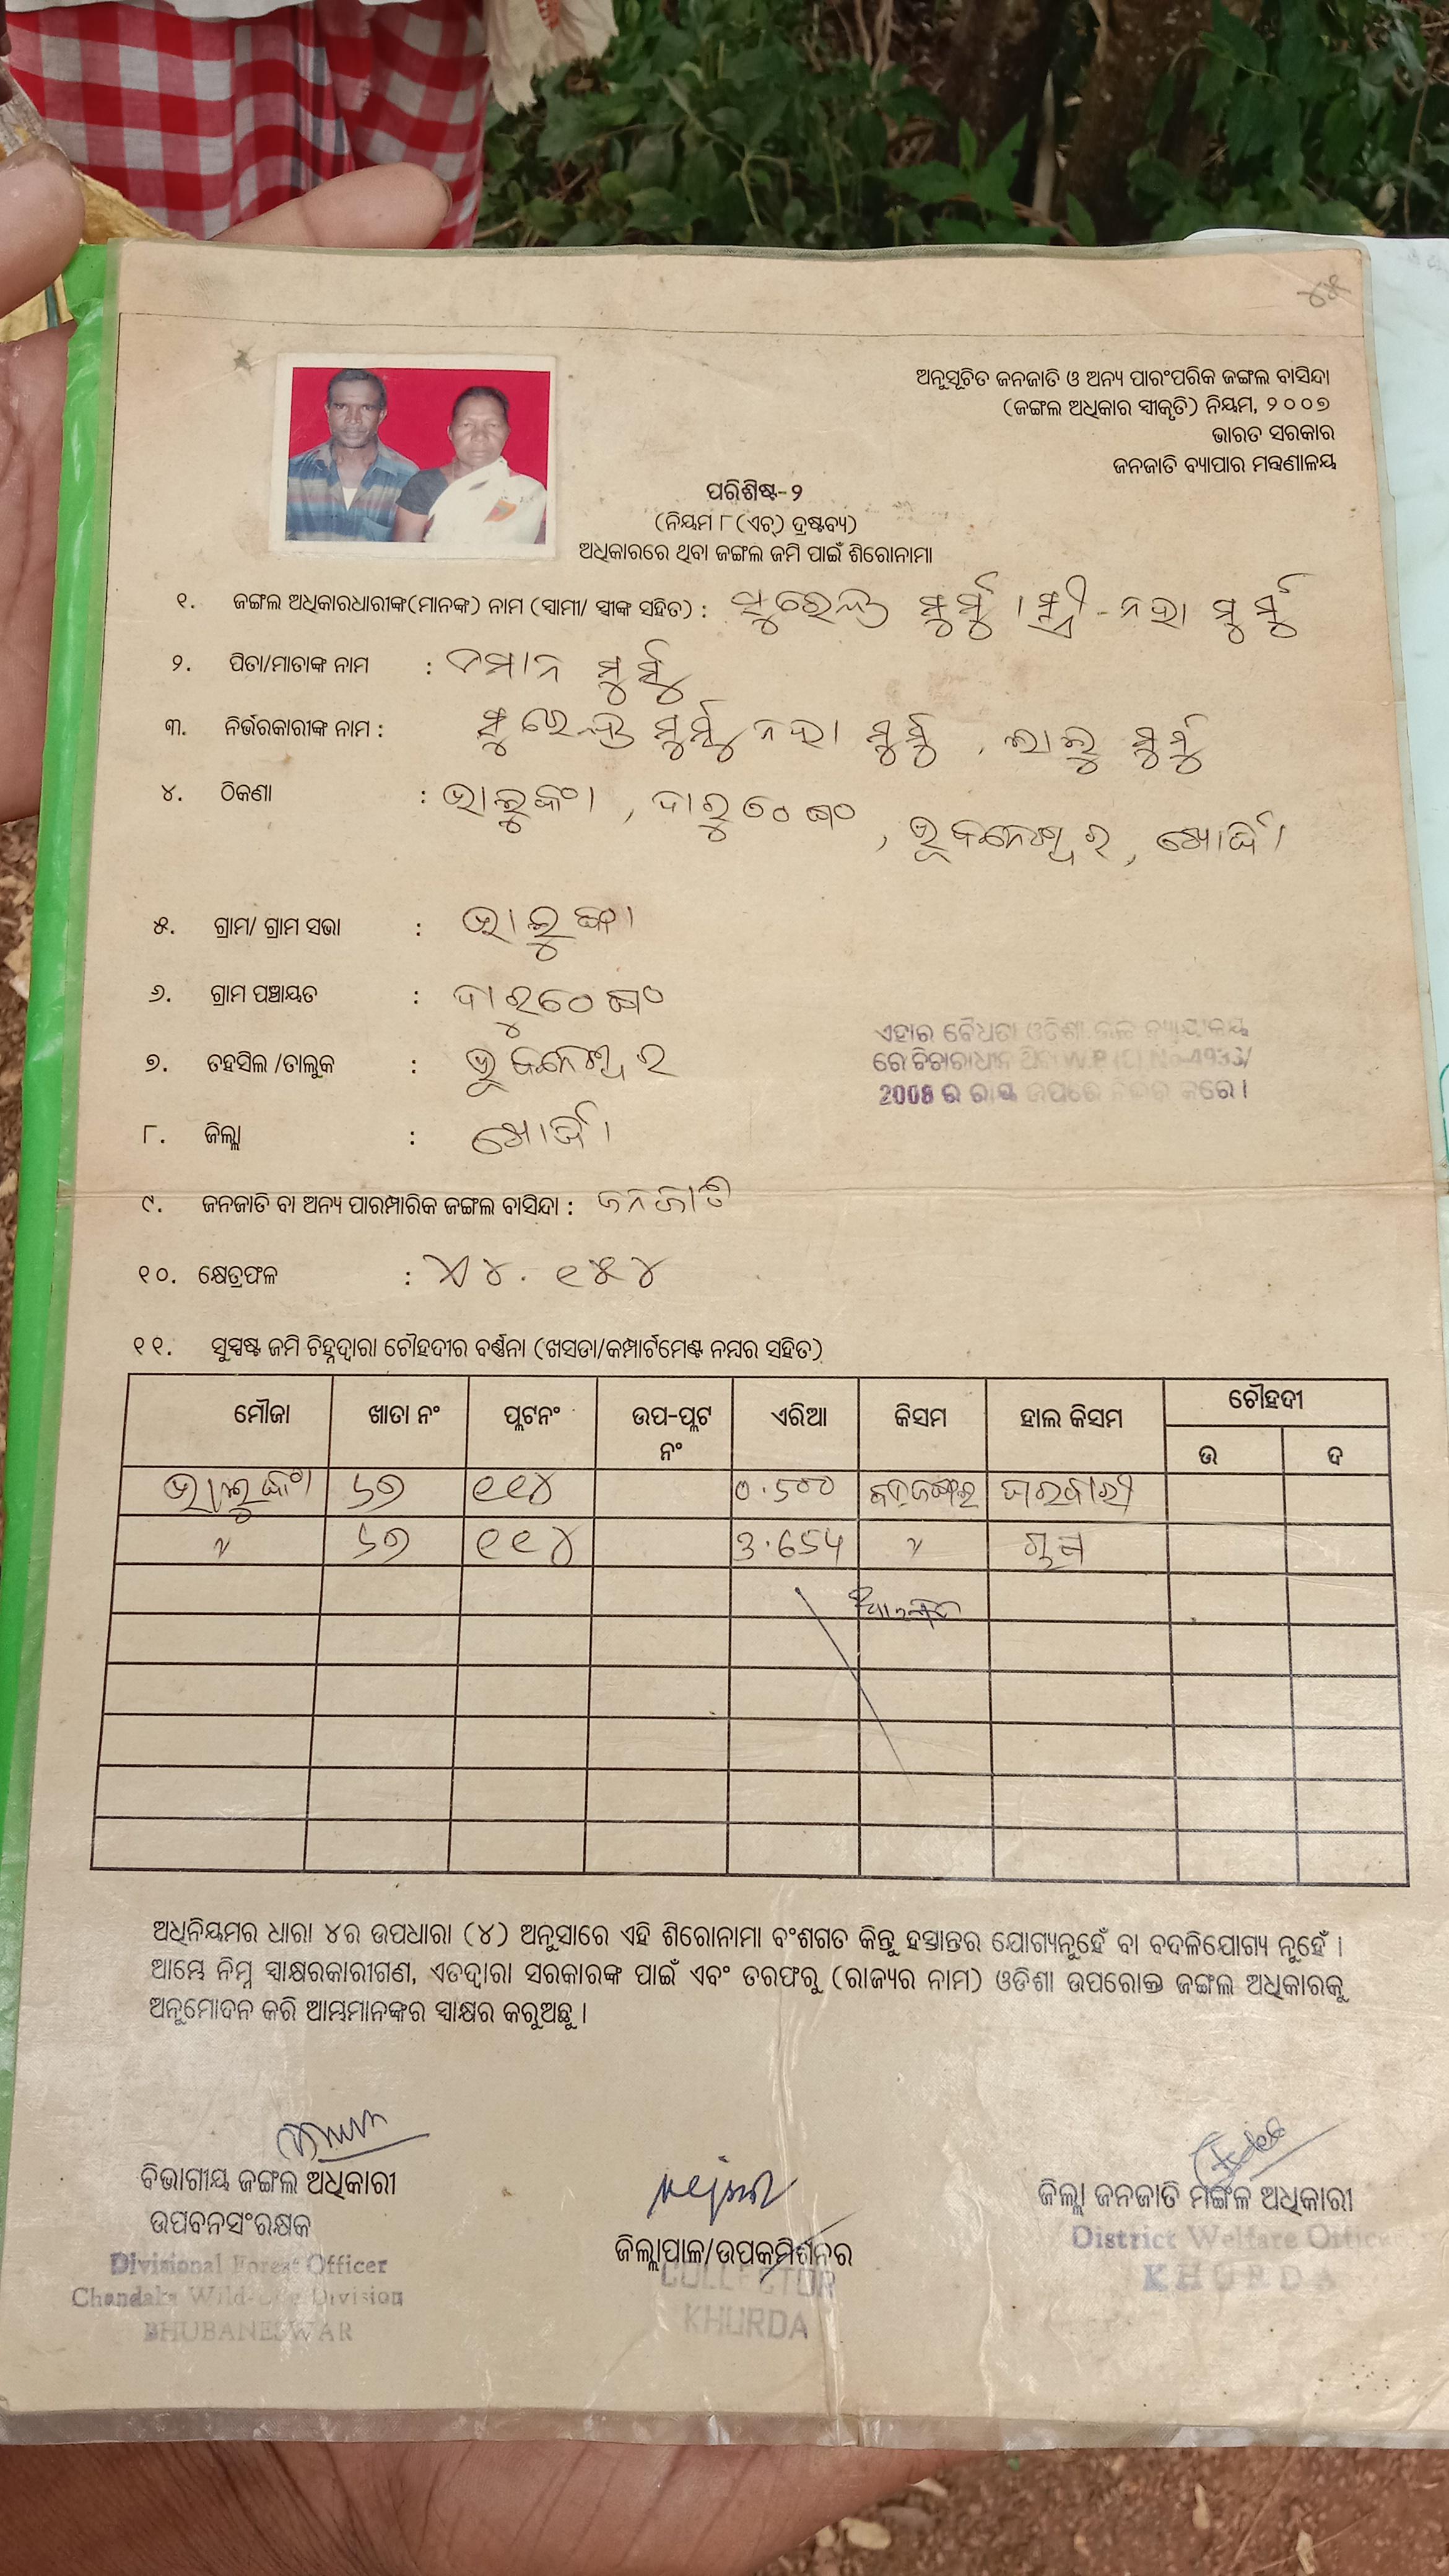 ୪୫
ଅନୁସୂଚିତ ଜନଜାତି ଓ ଅନ୍ୟ ପାରଂପରିକ ଜଙ୍ଗଲ ବାସିନ୍ଦା
(ଜଙ୍ଗଲ ଅଧିକାର ସ୍ୱୀକୃତି) ନିୟମ, ୨୦୦୭
ଭାରତ ସରକାର
ଜନଜାତି ବ୍ୟାପାର ମନ୍ତ୍ରଣାଳୟ
ପରିଶିଷ୍ଟ-୨
(ନିୟମ ୮(ଏଚ୍) ଦ୍ରଷ୍ଟବ୍ୟ)
ଅଧିକାରରେ ଥିବା ଜଙ୍ଗଲ ଜମି ପାଇଁ ଶିରୋନାମା
୧. ଜଙ୍ଗଲ ଅଧିକାରଧାରୀଙ୍କ(ମାନଙ୍କ) ନାମ (ସ୍ୱାମୀ/ ସ୍ତ୍ରୀଙ୍କ ସହିତ) : ସୁରେନ୍ଦ୍ର ମୁର୍ମୁ । ସ୍ତ୍ରୀ - ନହା ମୁର୍ମୁ
୨. ପିତା/ମାତାଙ୍କ ନାମ : ମୁର୍ମୁ
୩. ନିର୍ଭରକାରୀଙ୍କ ନାମ : ସୁରେନ୍ଦ୍ର ମୁର୍ମୁ, ନହା ମୁର୍ମୁ, ଲାଲୁ ମୁର୍ମୁ
୪. ଠିକଣା : ଭାଲୁଙ୍କା, ଦାରୁଠେଙ୍ଗ, ଭୁବନେଶ୍ୱର, ଖୋର୍ଦ୍ଧା
୫. ଗ୍ରାମ/ ଗ୍ରାମ ସଭା : ଭାଲୁଙ୍କା
୬. ଗ୍ରାମ ପଞ୍ଚାୟତ : ଦାରୁଠେଙ୍ଗ
୭. ତହସିଲ /ତାଲୁକ : ଭୁବନେଶ୍ୱର
ଏହାର ବୈଧତା ଓଡିଶା ନ୍ୟାୟାଳୟ
ରେ ବିଚାରାଧୀନ W.P (C) No-4933/
2008 ର ରାୟ ଉପରେ ନିର୍ଭର କରେ ।
୮. ଜିଲ୍ଲା : ଖୋର୍ଦ୍ଧା
୯. ଜନଜାତି ବା ଅନ୍ୟ ପାରମ୍ପାରିକ ଜଙ୍ଗଲ ବାସିନ୍ଦା : ଜନଜାତି
୧୦. କ୍ଷେତ୍ରଫଳ : ୪.୧୫୪
୧୧. ସୁସ୍ପଷ୍ଟ ଜମି ଚିହ୍ନଦ୍ୱାରା ଚୌହଦୀର ବର୍ଣ୍ଣନା (ଖସଡା/କମ୍ପାର୍ଟମେଣ୍ଟ ନମ୍ବର ସହିତ)
ମୌଜା ଖାତା ନଂ ପ୍ଲଟନଂ ଉପ-ପ୍ଲଟ ନଂ ଏରିଆ କିସମ ହାଲ କିସମ ଚୌହଦୀ
ଉ ଦ
ଭାଲୁଙ୍କା ୬୭ ୧୧୪ ୦.୫୦୦ ଘରବାରୀ
" ୬୭ ୧୧୪ ୩.୬୫୪ "
ଅଧିନିୟମର ଧାରା ୪ର ଉପଧାରା (୪) ଅନୁସାରେ ଏହି ଶିରୋନାମା ବଂଶଗତ କିନ୍ତୁ ହସ୍ତାନ୍ତର ଯୋଗ୍ୟନୁହେଁ ବା ବଦଳିଯୋଗ୍ୟ ନୁହେଁ ।
ଆମ୍ଭେ ନିମ୍ନ ସ୍ୱାକ୍ଷରକାରୀଗଣ, ଏତଦ୍ୱାରା ସରକାରଙ୍କ ପାଇଁ ଏବଂ ତରଫରୁ (ରାଜ୍ୟର ନାମ) ଓଡିଶା ଉପରୋକ୍ତ ଜଙ୍ଗଲ ଅଧିକାରକୁ
ଅନୁମୋଦନ କରି ଆମ୍ଭମାନଙ୍କର ସ୍ୱାକ୍ଷର କରୁଅଛୁ ।
ବିଭାଗୀୟ ଜଙ୍ଗଲ ଅଧିକାରୀ
ଉପବନସଂରକ୍ଷକ
Divisional Forest Officer
Chandaka Wild-Life Division
BHUBANESWAR
ଜିଲ୍ଲାପାଳ/ଉପକମିର୍ଶନର
COLLECTOR
KHURDA
ଜିଲ୍ଲା ଜନଜାତି ମଙ୍ଗଳ ଅଧିକାରୀ
District Welfare Officer
KHURDA